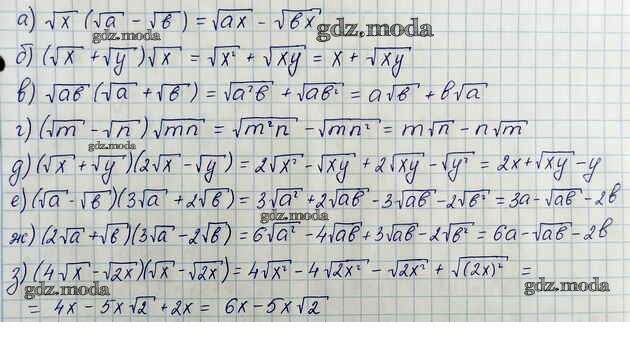 а) √x (√a - √b) = √ax - √bx
gdz.moda
б) (√x + √y)√x = √x² + √xy = x + √xy
в) √ab (√a + √b) = √a²b + √ab² = a√b + b√a
г) (√m - √n)√mn = √m²n - √mn² = m√n - n√m
gdz.moda
д) (√x + √y)(2√x - √y) = 2√x² - √xy + 2√xy - √y² = 2x + √xy - y
е) (√a - √b)(3√a + 2√b) = 3√a² + 2√ab - 3√ab - 2√b² = 3a - √ab - 2b
gdz.moda
ж) (2√a + √b)(3√a - 2√b) = 6√a² - 4√ab + 3√ab - 2√b² = 6a - √ab - 2b
з) (4√x - √2x)(√x - √2x) = 4√x² - 4√2x² - √2x² + √(2x)² =
gdz.moda gdz.moda
= 4x - 5x√2 + 2x = 6x - 5x√2